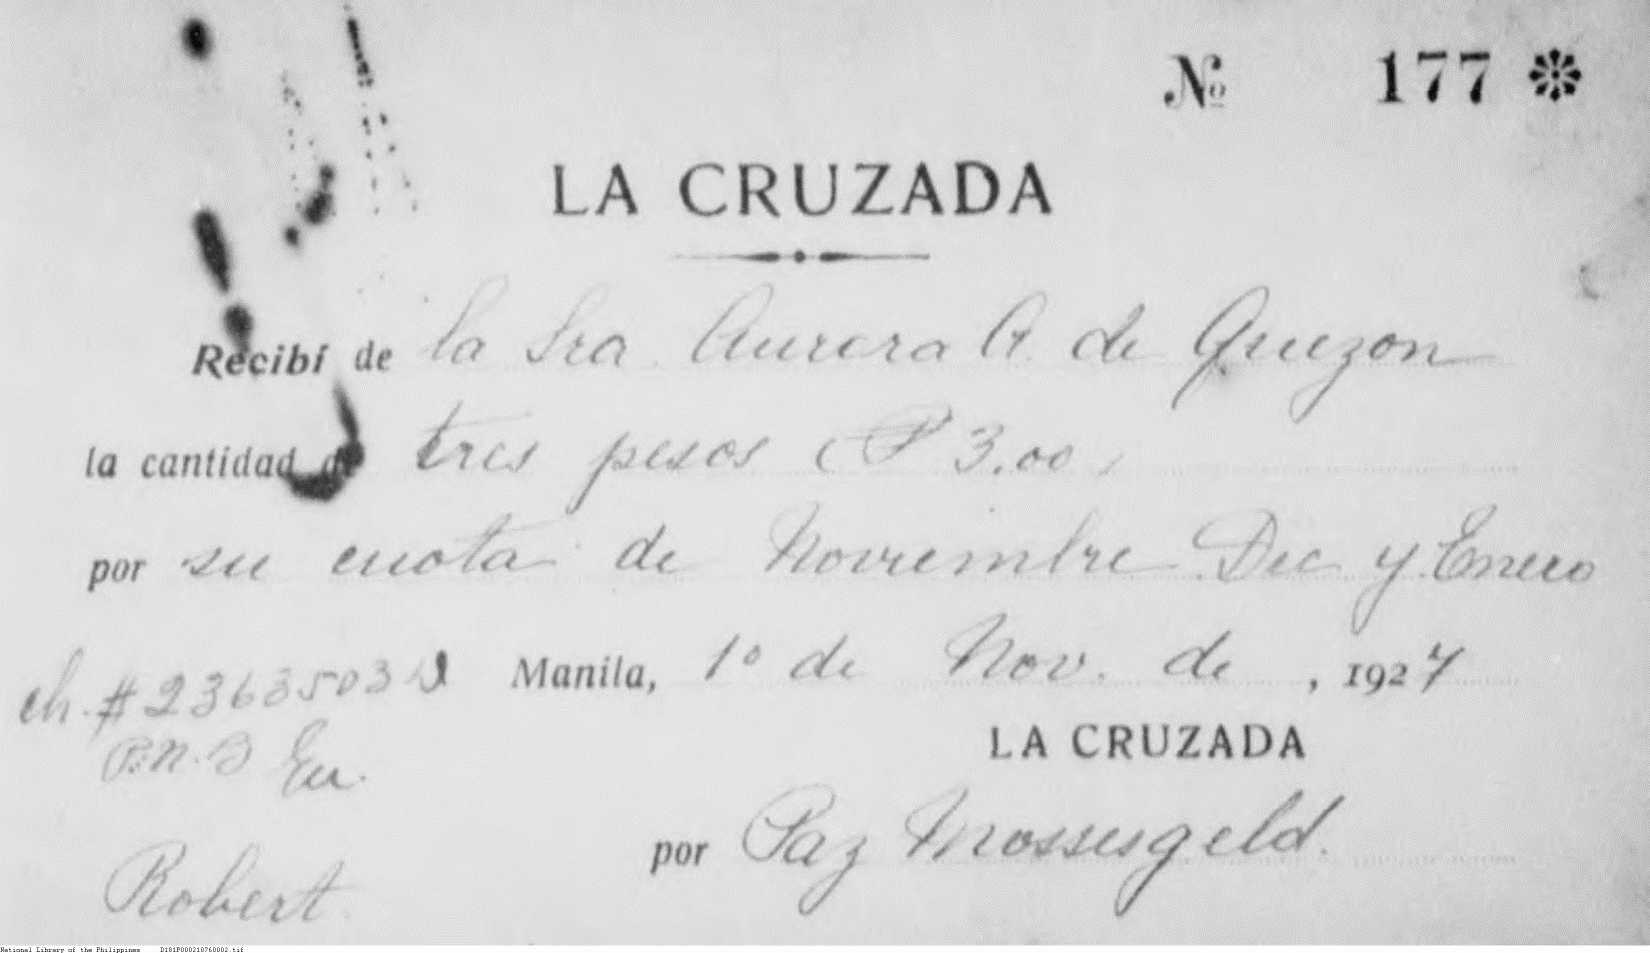 Nº 177
LA CRUZADA
Recibí de la Sra Aurora A. de Quezon
la cantidad de tres pesos (₱ 3.00)
por su cuota de Noviembre Dic y Enero
Manila, 1º de Nov. de , 1927
ch. #2363503
P.N.B
LA CRUZADA
por Paz Mossesgeld.
Robert
National Library of the Philippines D101P000210760002.tif